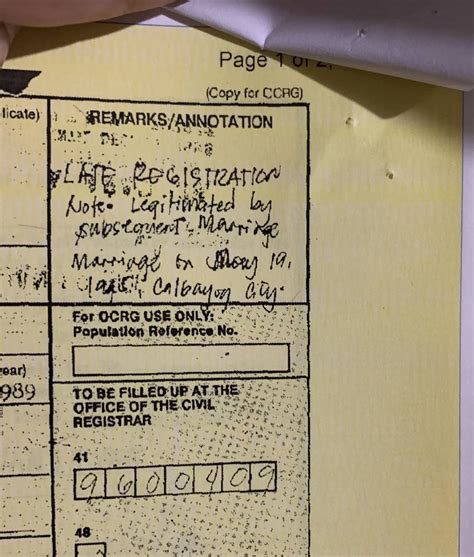 Page 1 of 2,
(Copy for OCRG)
licate)
REMARKS/ANNOTATION
LATE REGISTRATION
Note: Legitimated by
subsequent Marriage
Marriage on May 19,
Calbayog City.
For OCRG USE ONLY:
Population Reference No.
ear)
989
TO BE FILLED UP AT THE
OFFICE OF THE CIVIL
REGISTRAR
41
9600409
48